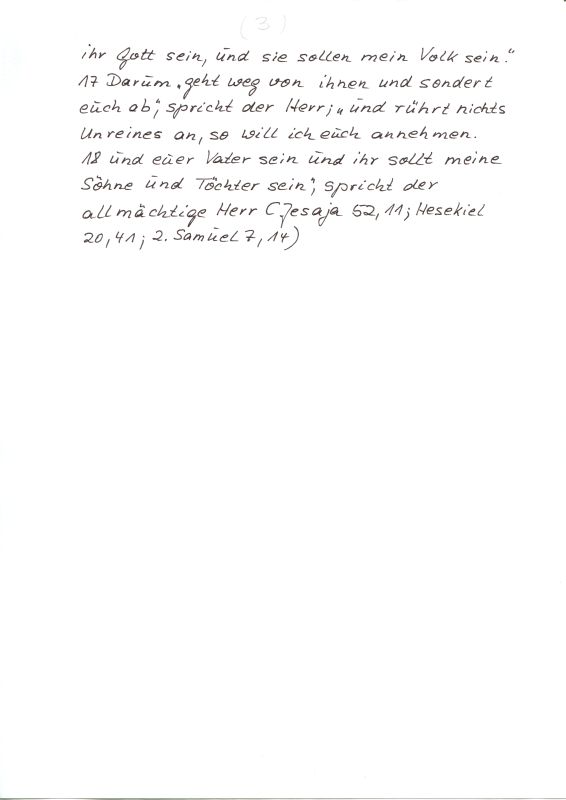 (3)
ihr Gott sein, und sie sollen mein Volk sein."
17 Darum „geht weg von ihnen und sondert
euch ab", spricht der Herr; „und rührt nichts
Unreines an, so will ich euch annehmen.
18 und euer Vater sein und ihr sollt meine
Söhne und Töchter sein", spricht der
allmächtige Herr (Jesaja 52,11; Hesekiel
20,41; 2. Samuel 7,14)